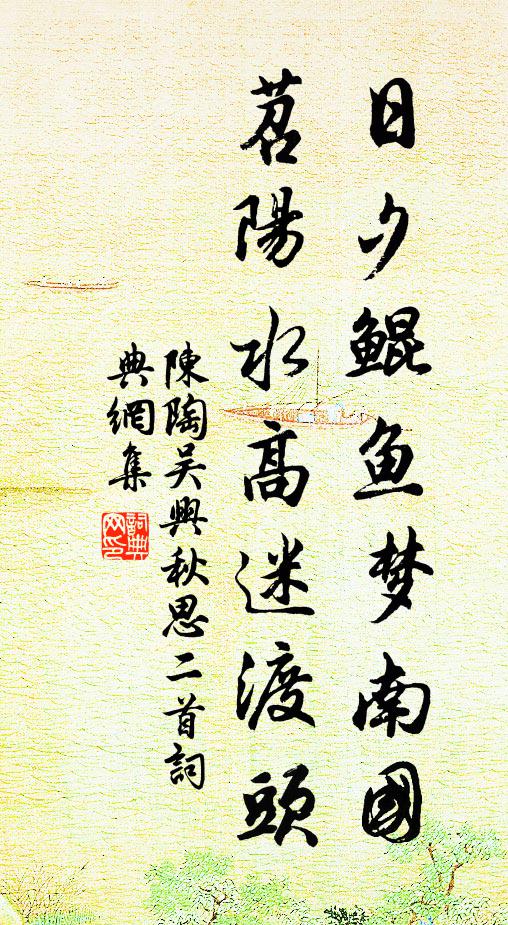 日夕鲲鱼梦南國
苕陽水高迷渡頭
陳陶吴興秋思二首詞
典網集
詞典网印